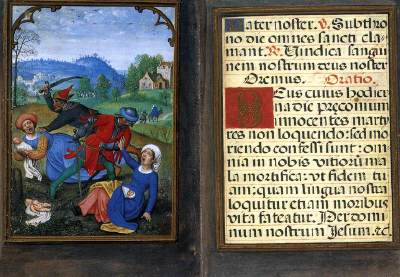 Pater noster. V. Sub thro
no dei omnes sancti cla
mant. R. Vindica sangui
nem nostrum deus noster
Oremus. Oratio.
Deus cuius hodier
na die preconium
innocentes marty
res non loquendo: sed mo
riendo confessi sunt: om
nia in nobis vitiorũ ma
la mortifica: ut fidem tu
am: quam lingua nostra
loquitur etiam moribus
vita fateatur. Per domi
num nostrum Jesum. &c.